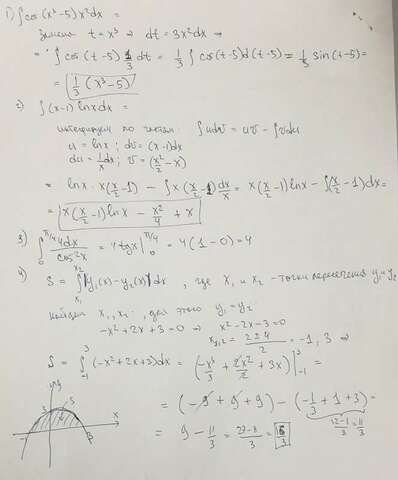 1) ∫cos(x³-5)x²dx =
Замена t = x³ ⇒ dt = 3x²dx ⇒
= ∫cos(t-5) 1/3 dt = 1/3 ∫cos(t-5)d(t-5) = 1/3 sin(t-5) =
= 1/3 (x³-5)
2) ∫(x-1)lnxdx =
интегрируем по частям: ∫udv = uv - ∫vdu
u = lnx; dv = (x-1)dx
du = 1/x dx; v = (x²/2 - x)
= lnx · x(x/2 - 1) - ∫x(x/2 - 1)dx/x = x(x/2 - 1)lnx - ∫(x/2 - 1)dx =
= x(x/2 - 1)lnx - x²/4 + x
3) ∫₀^π/4 4dx/cos²x = 4tgx|₀^π/4 = 4(1-0) = 4
4) S = ∫_x₁^x₂ |y₁(x) - y₂(x)|dx, где x₁ и x₂ - точки пересечения y₁ и y₂
найдем x₁, x₂, для этого y₁ = y₂
-x² + 2x + 3 = 0 ⇒ x² - 2x - 3 = 0
x₁,₂ = (2±4)/2 = -1, 3 ⇒
S = ∫₋₁³ (-x² + 2x + 3)dx = (-x³/3 + 2x²/2 + 3x)|₋₁³ =
= (-9 + 9 + 9) - (-1/3 + 1 + 3) =
12-1/3 = 11/3
= 9 - 11/3 = 27-8/3 = 16/3
y
3 S
-1 3 x